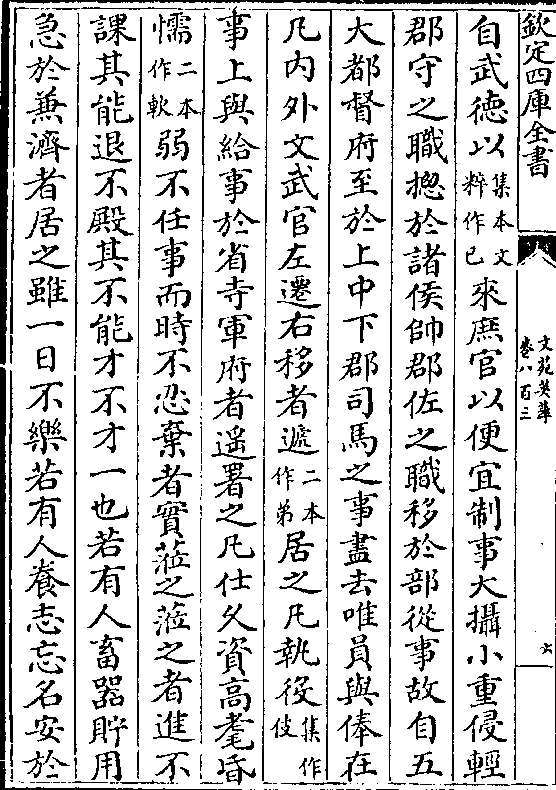 欽定四庫全書
文苑英華
卷八百三
六
自武德以集本文粹作已來庶官以便宜制事大攝小重侵輕
郡守之職揔於諸侯帥郡佐之職移於部從事故自五
大都督府至於上中下郡司馬之事盡去唯員與俸在
凡内外文武官左遷右移者遞二本作第居之凡執役集作伎
事上與給事於省寺軍府者遥署之凡仕久資高耄昏
懦二本作軟弱不任事而時不忍棄者實蒞之蒞之者進不
課其能退不殿其不能才不才一也若有人畜器貯用
急於兼濟者居之雖一日不樂若有人養志忘名安於